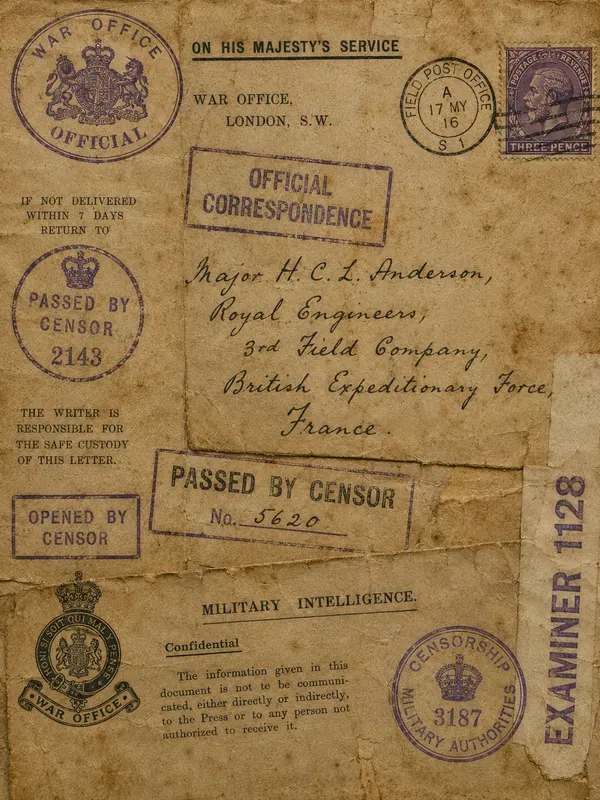 WAR OFFICE
OFFICIAL
ON HIS MAJESTY'S SERVICE
WAR OFFICE,
LONDON, S.W.
FIELD POST OFFICE
A
17 MY
16
S 1
POSTAGE & REVENUE
THREE PENCE
OFFICIAL
CORRESPONDENCE
IF NOT DELIVERED
WITHIN 7 DAYS
RETURN TO
PASSED BY
CENSOR
2143
Major H. C. L. Anderson,
Royal Engineers,
3rd Field Company,
British Expeditionary Force,
France.
THE WRITER IS
RESPONSIBLE FOR
THE SAFE CUSTODY
OF THIS LETTER.
OPENED BY
CENSOR
PASSED BY CENSOR
No. 5620
EXAMINER 1128
MILITARY INTELLIGENCE.
Confidential
The information given in this
document is not te be communi-
cated, either directly or indirectly,
to the Press or to any person not
authorized to receive it.
WAR OFFICE
CENSORSHIP
3187
MILITARY AUTHORITIES